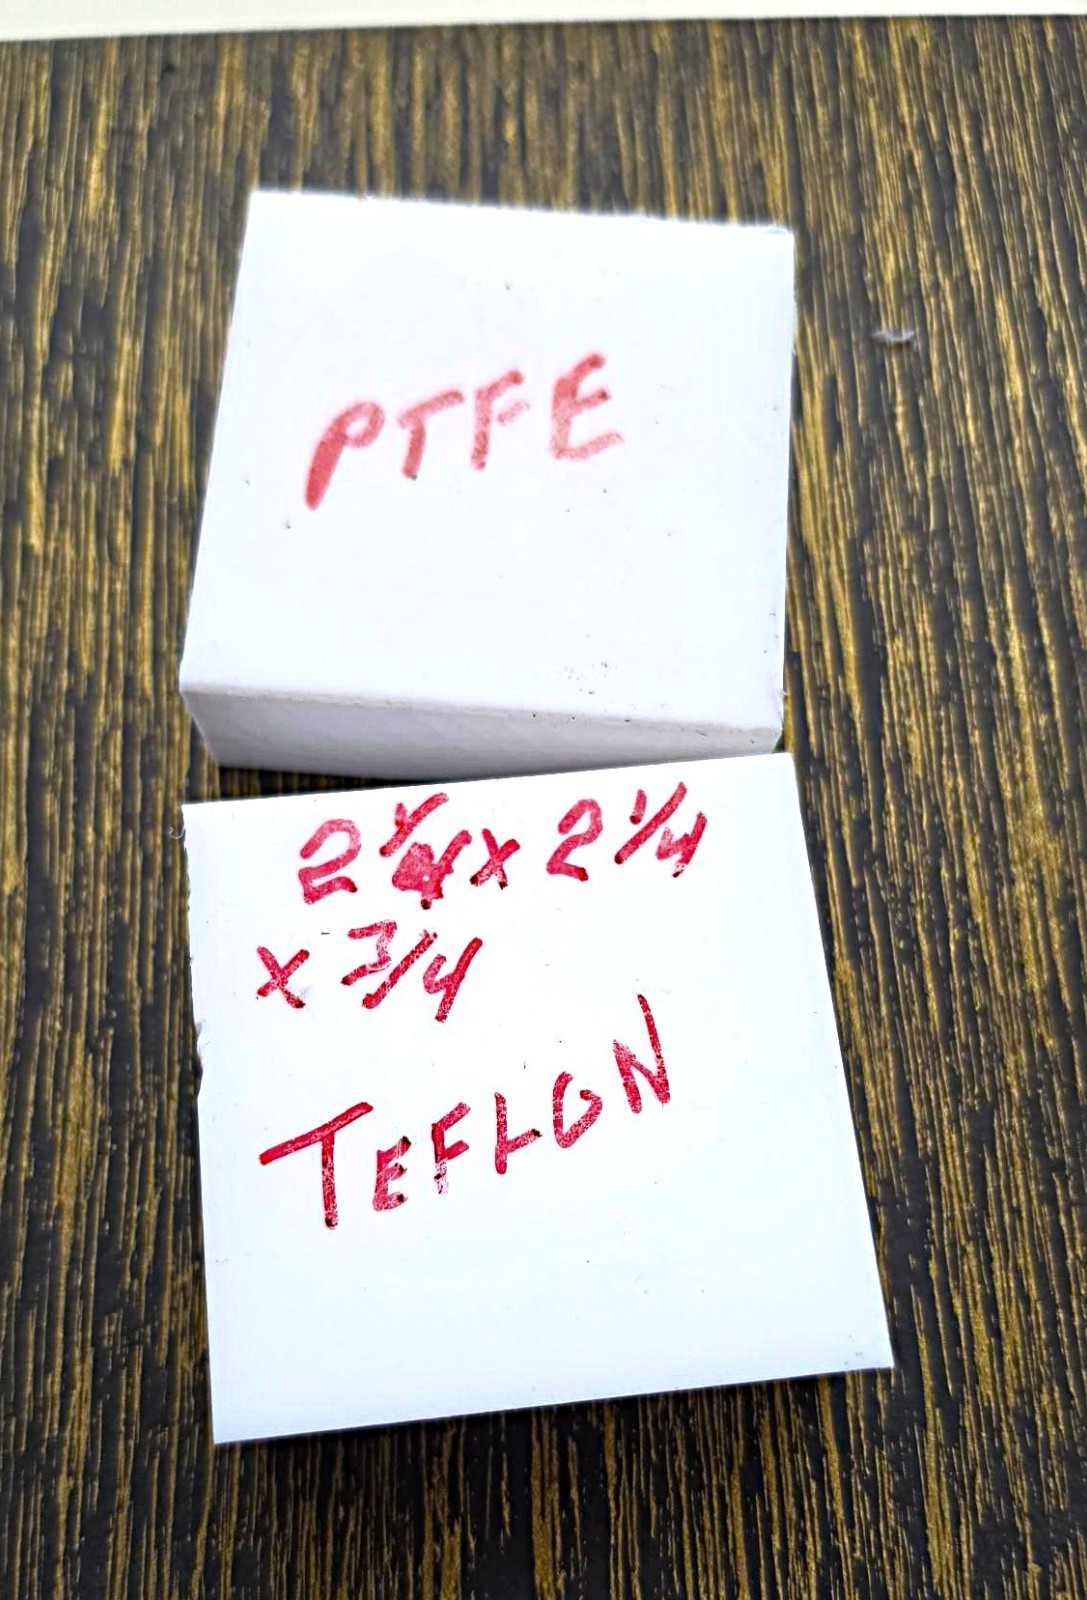 PTFE
2 1/4 x 2 1/4
x 3/4
TEFLON